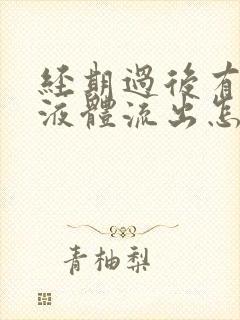 經期過後有
液體流出怎
青柚梨